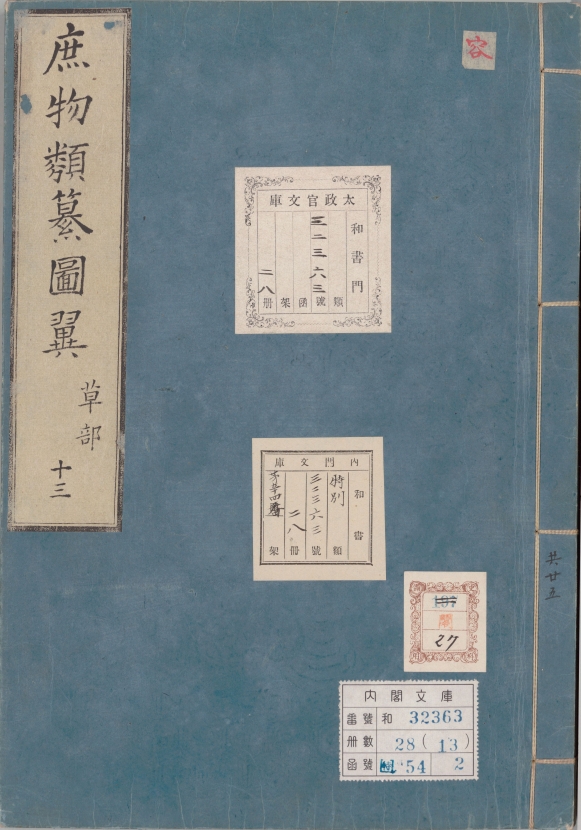 庶物類纂圖翼
草部
十三
容
太政官文庫
和書門
三二三六三
二八
類號函架册
内閣文庫
和書
特別
三二三六三
二八
類號册架
27
内閣文庫
番號 和 32363
册數 28(13)
函號 54 2
共廿五